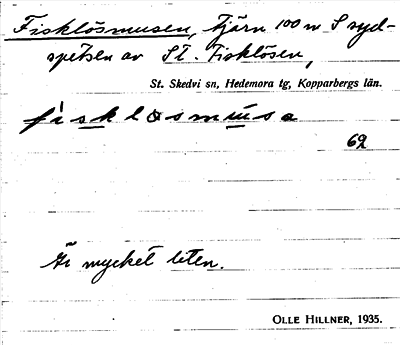 Fisklösmusen, tjärn 100 m S syd-
spetsen av St. Fisklösen,
St. Skedvi sn, Hedemora tg, Kopparbergs län.
fisklosmusa
69
Är mycket liten.
OLLE HILLNER, 1935.